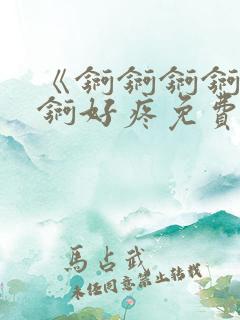 《錒錒錒錒
錒好疼免費
馬占武
未经同意禁止转载